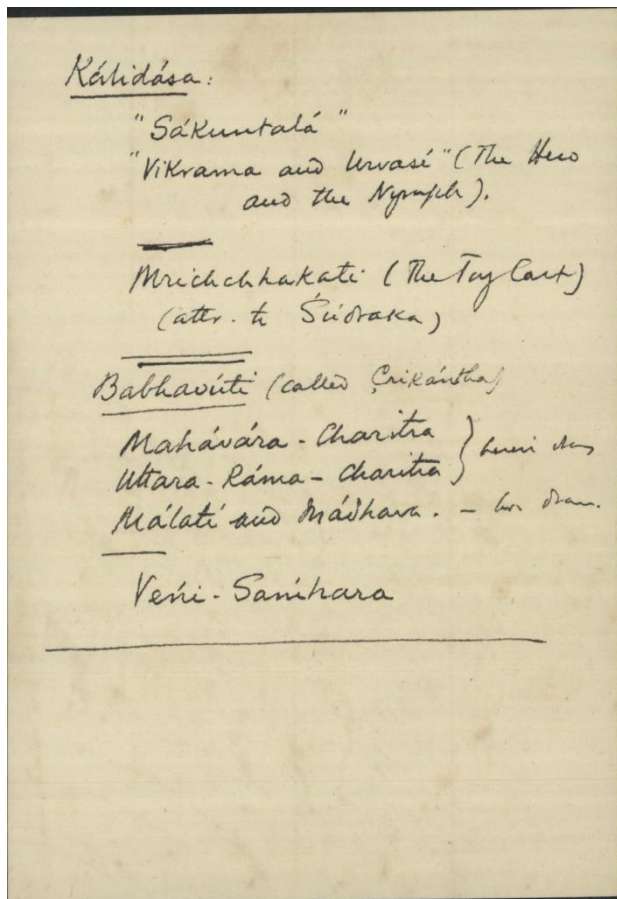 Kálidása:
"Sákuntalá"
"Vikrama and Urvasé" (The Hero
and the Nymph).
Mrichchhakati (The Toy Cart)
(attr. to Śúdraka)
Babhavúti (called Çrikántha)
Mahávára - Charitra
Uttara - Ráma - Charitra
Málatí and Mádhava. -
Veńi - Saníhara